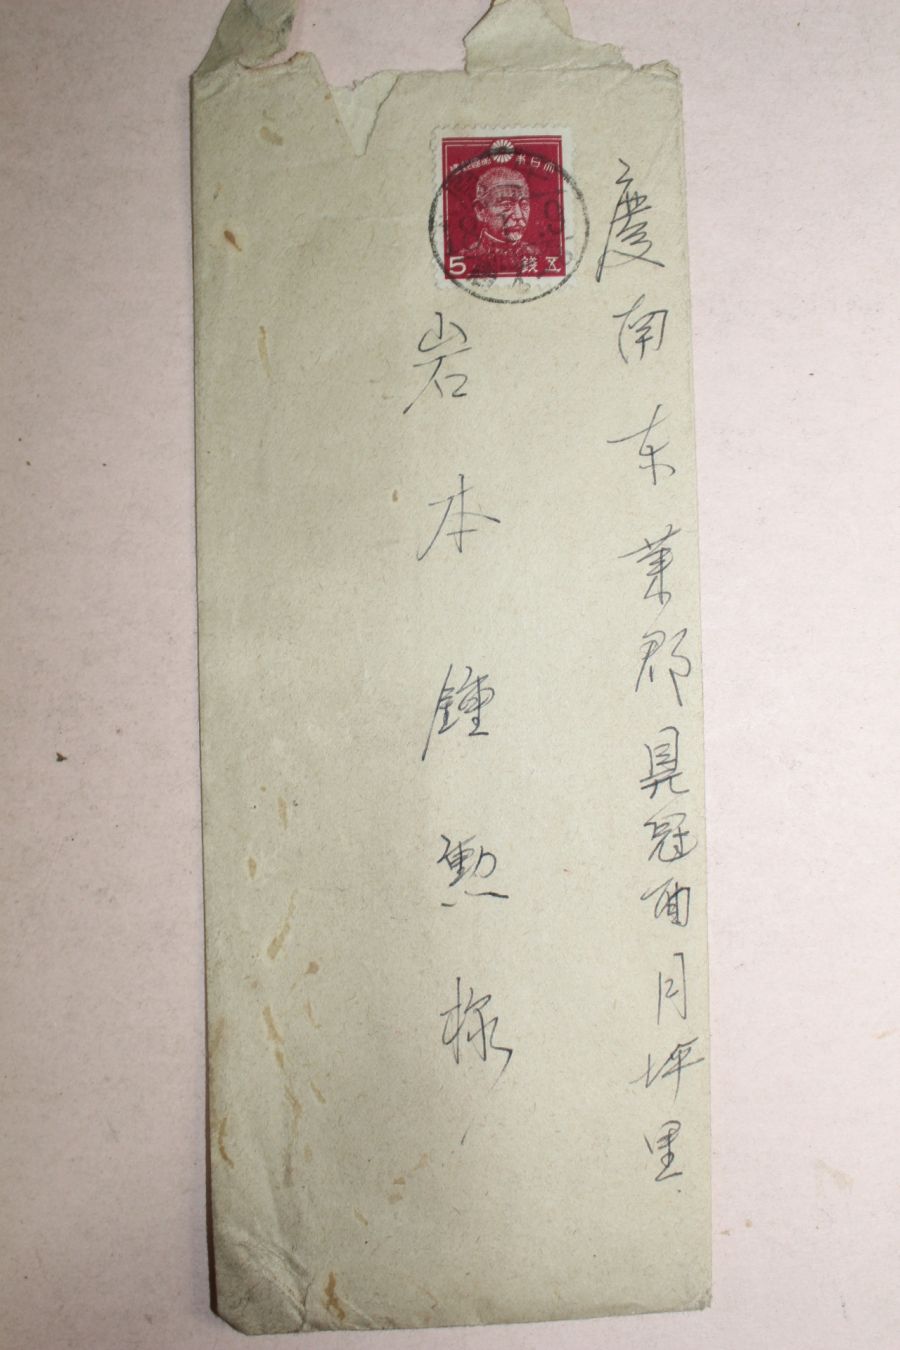 慶南东萊郡具冠面月坪里
岩本鍾勲様
大日本帝國郵便
5 五錢